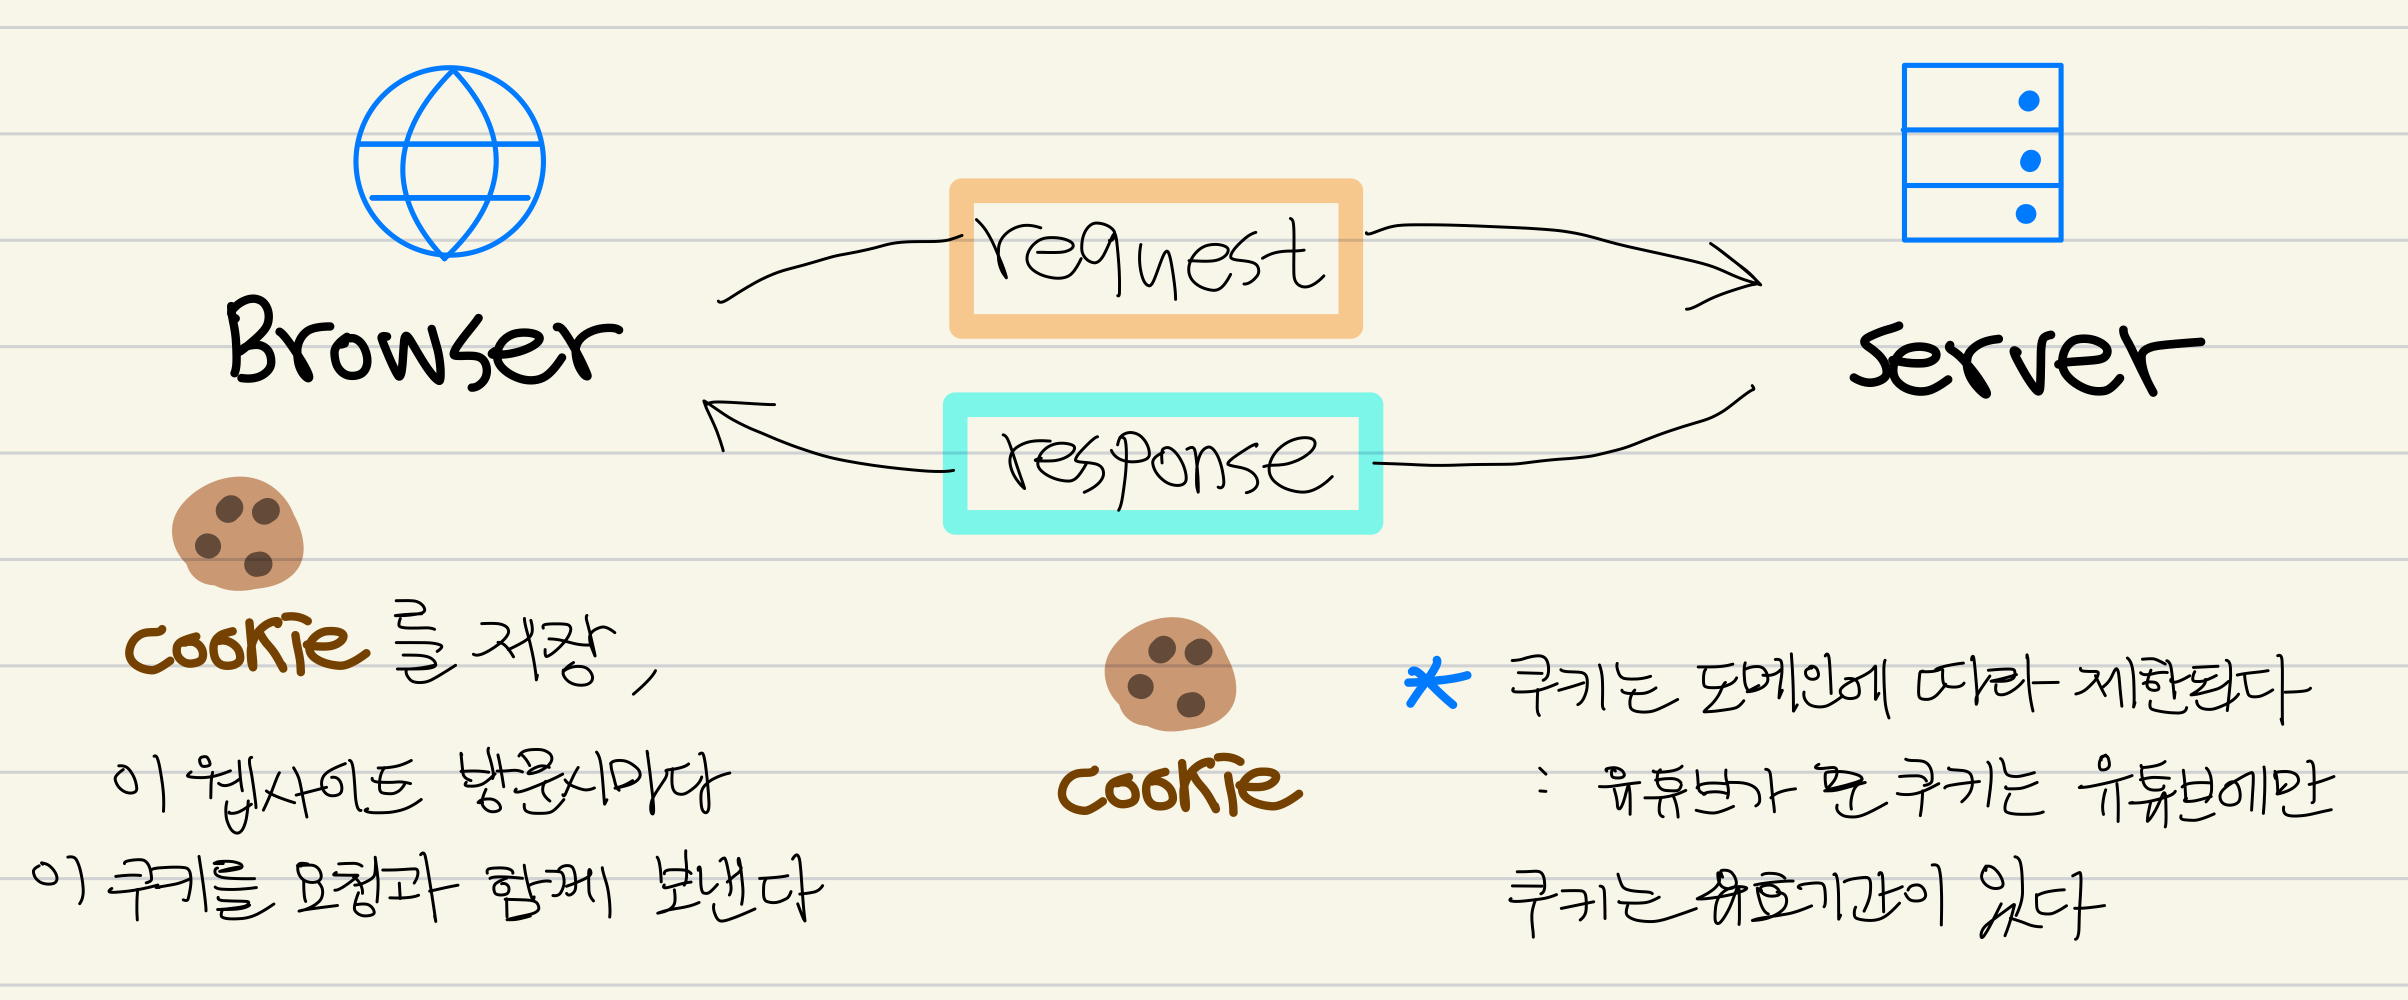 request
Browser
server
response
cookie를 저장,
이 웹사이트 방문시마다
이 쿠키를 요청과 함께 보낸다
cookie
* 쿠키는 도메인에 따라 제한된다
: 유튜브가 준 쿠키는 유튜브에만
쿠키는 유효기간이 있다